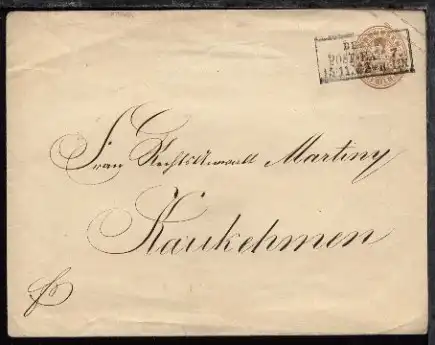 POST-EX
15.11.
Frau Rechtsanwalt Martiny
Kaukehmen
fr